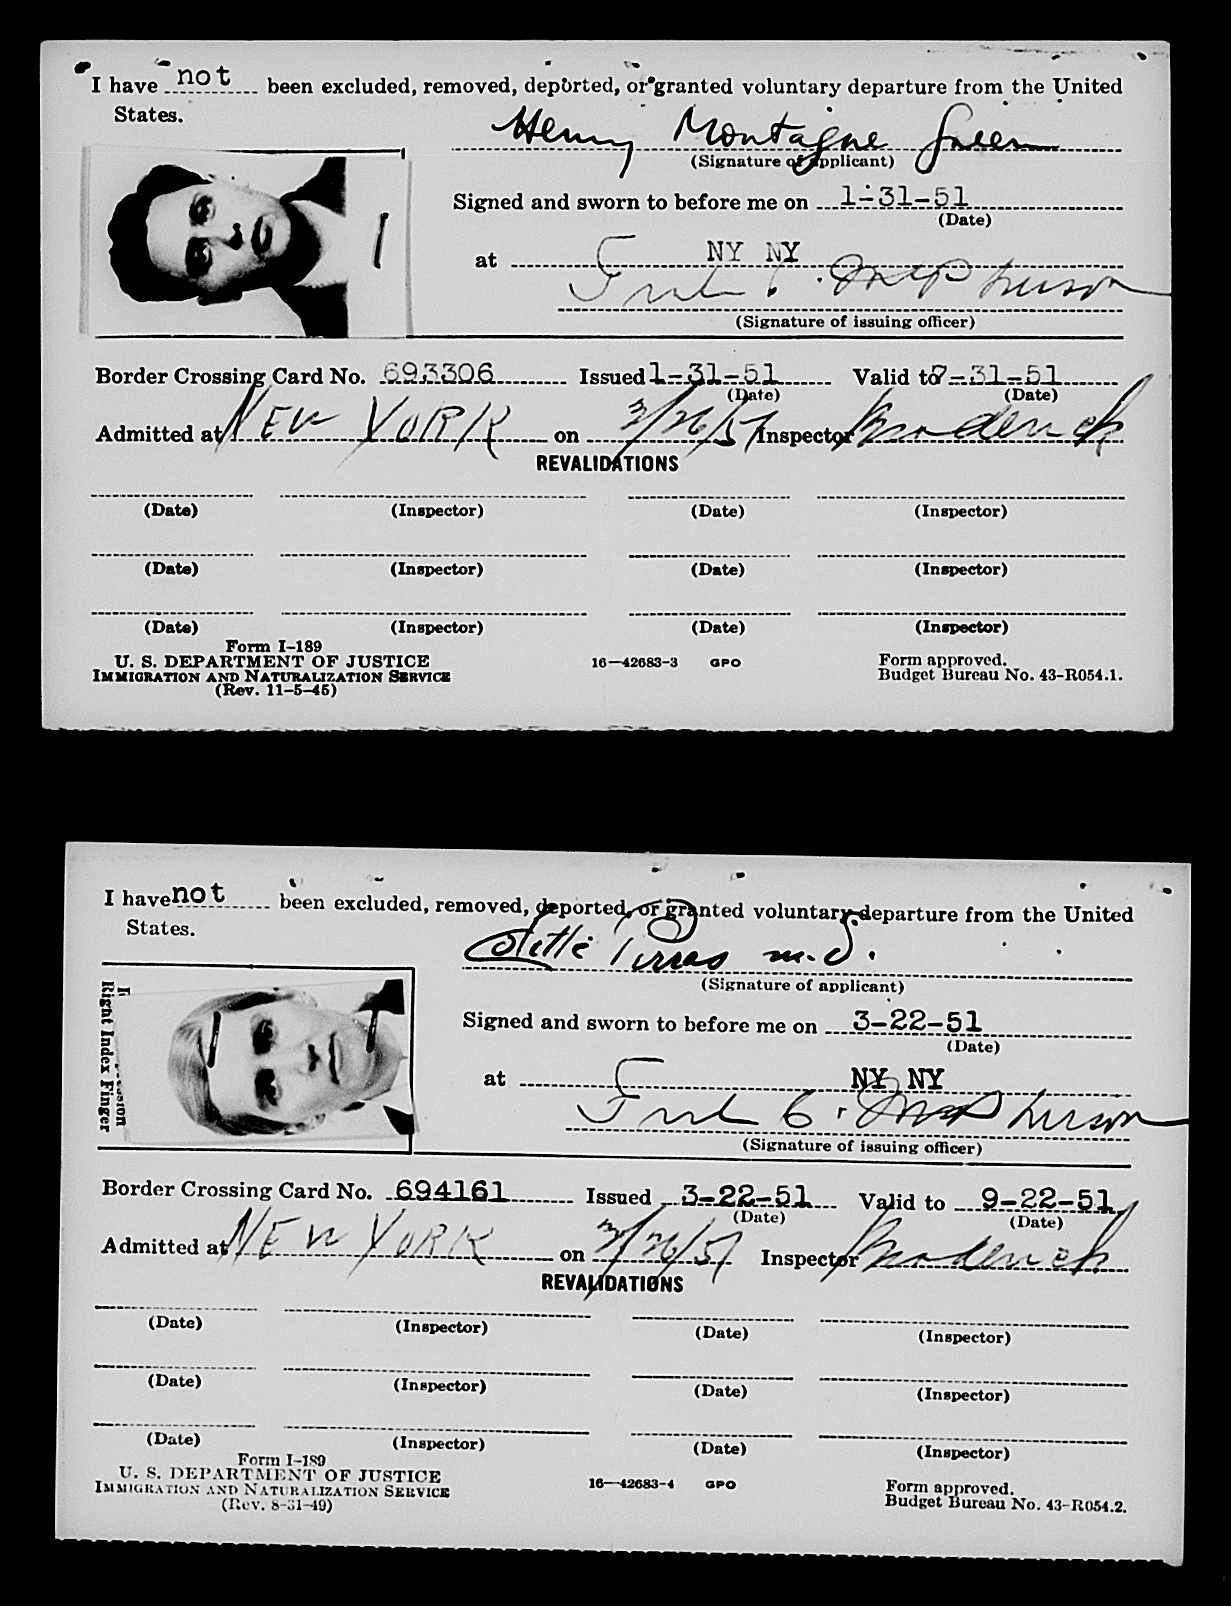 I have not been excluded, removed, deported, or granted voluntary departure from the United
States.
Henry Montague Green
(Signature of applicant)
Signed and sworn to before me on 1-31-51
(Date)
at NY NY
(Signature of issuing officer)
Border Crossing Card No. 693306 Issued 1-31-51 Valid to 7-31-51
(Date) (Date)
Admitted at NEW YORK on 3/26/51 Inspector Broderick
REVALIDATIONS
(Date) (Inspector) (Date) (Inspector)
(Date) (Inspector) (Date) (Inspector)
(Date) (Inspector) (Date) (Inspector)
Form I-189
U. S. DEPARTMENT OF JUSTICE
IMMIGRATION AND NATURALIZATION SERVICE
(Rev. 11-5-45)
16—42683-3 GPO
Form approved.
Budget Bureau No. 43-R054.1.
I have not been excluded, removed, deported, or granted voluntary departure from the United
States.
m.d.
(Signature of applicant)
Right Index Finger
Signed and sworn to before me on 3-22-51
(Date)
at NY NY
(Signature of issuing officer)
Border Crossing Card No. 694161 Issued 3-22-51 Valid to 9-22-51
(Date) (Date)
Admitted at NEW YORK on 3/26/51 Inspector Broderick
REVALIDATIONS
(Date) (Inspector) (Date) (Inspector)
(Date) (Inspector) (Date) (Inspector)
(Date) (Inspector) (Date) (Inspector)
Form I-189
U. S. DEPARTMENT OF JUSTICE
IMMIGRATION AND NATURALIZATION SERVICE
(Rev. 8-31-49)
16—42683-4 GPO
Form approved.
Budget Bureau No. 43-R054.2.